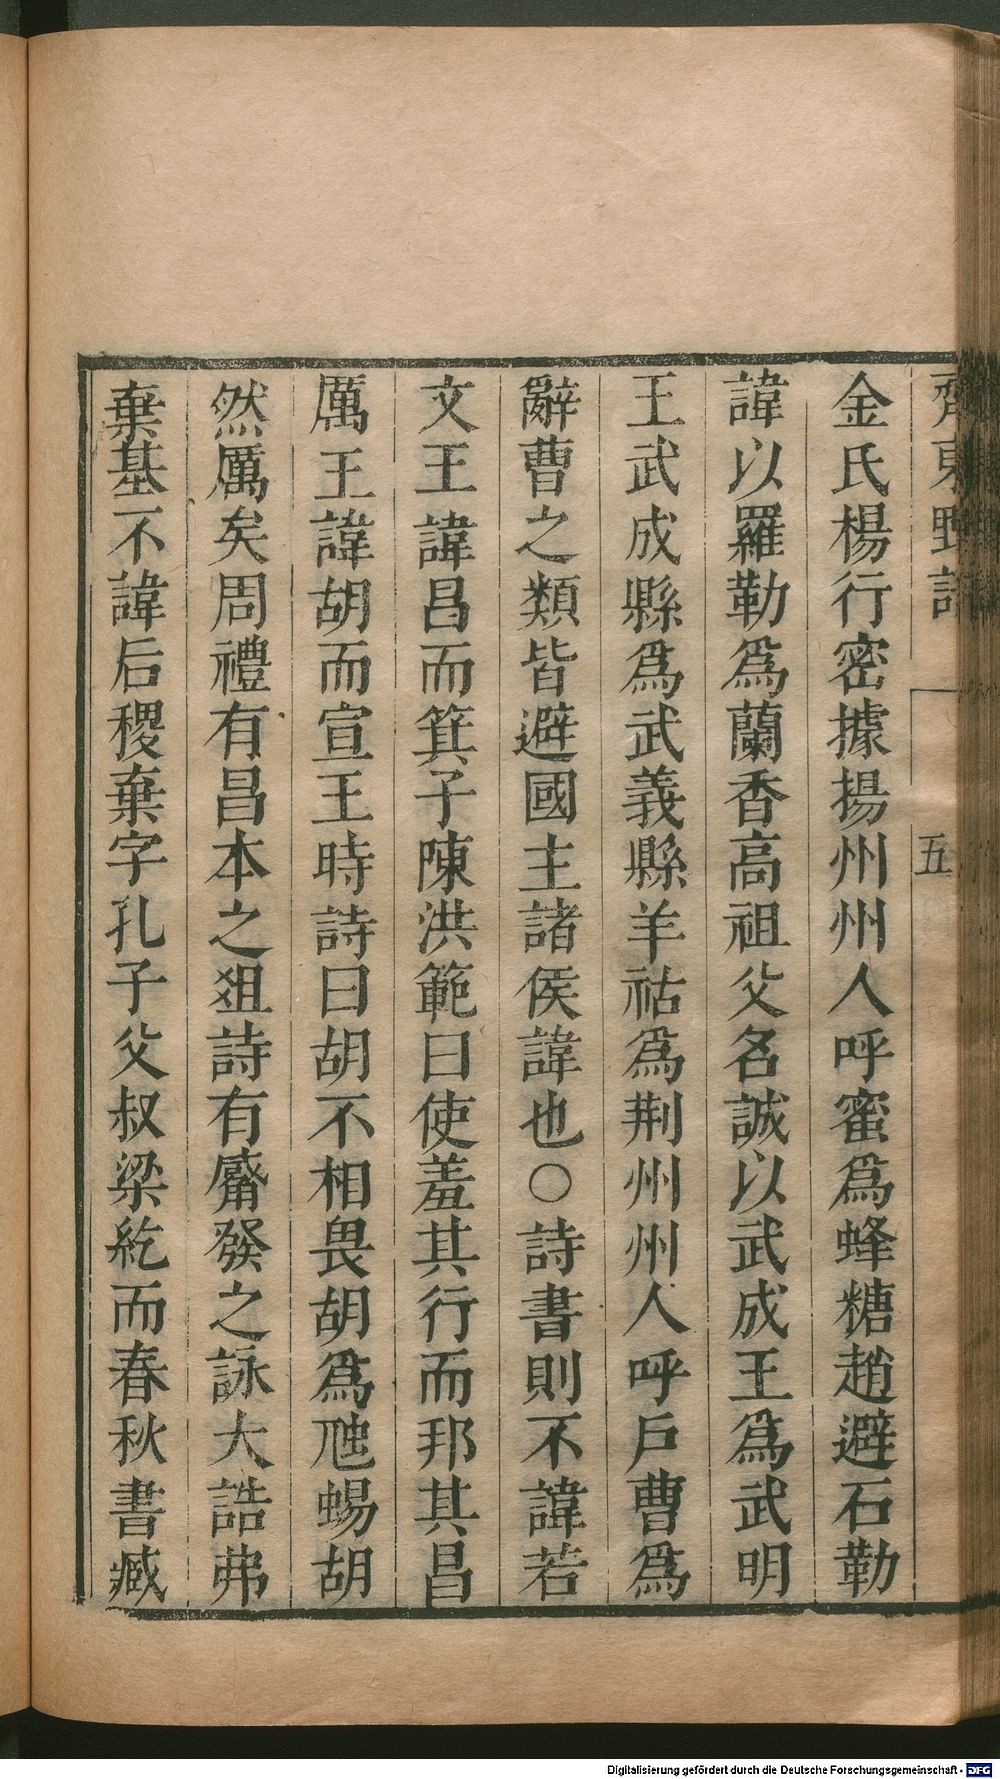 齊東野語
五
金氏楊行密據揚州州人呼蜜爲蜂糖趙避石勒
諱以羅勒爲蘭香高祖父名誠以武成王爲武明
王武成縣爲武義縣羊祜爲荆州州人呼戶曹爲
辭曹之類皆避國主諸侯諱也○詩書則不諱若
文王諱昌而箕子陳洪範曰使羞其行而邦其昌
厲王諱胡而宣王時詩曰胡不相畏胡爲虺蜴胡
然厲矣周禮有昌本之俎詩有觱發之詠大誥弗
棄基不諱后稷棄字孔子父叔梁紇而春秋書臧
Digitalisierung gefördert durch die Deutsche Forschungsgemeinschaft - DFG